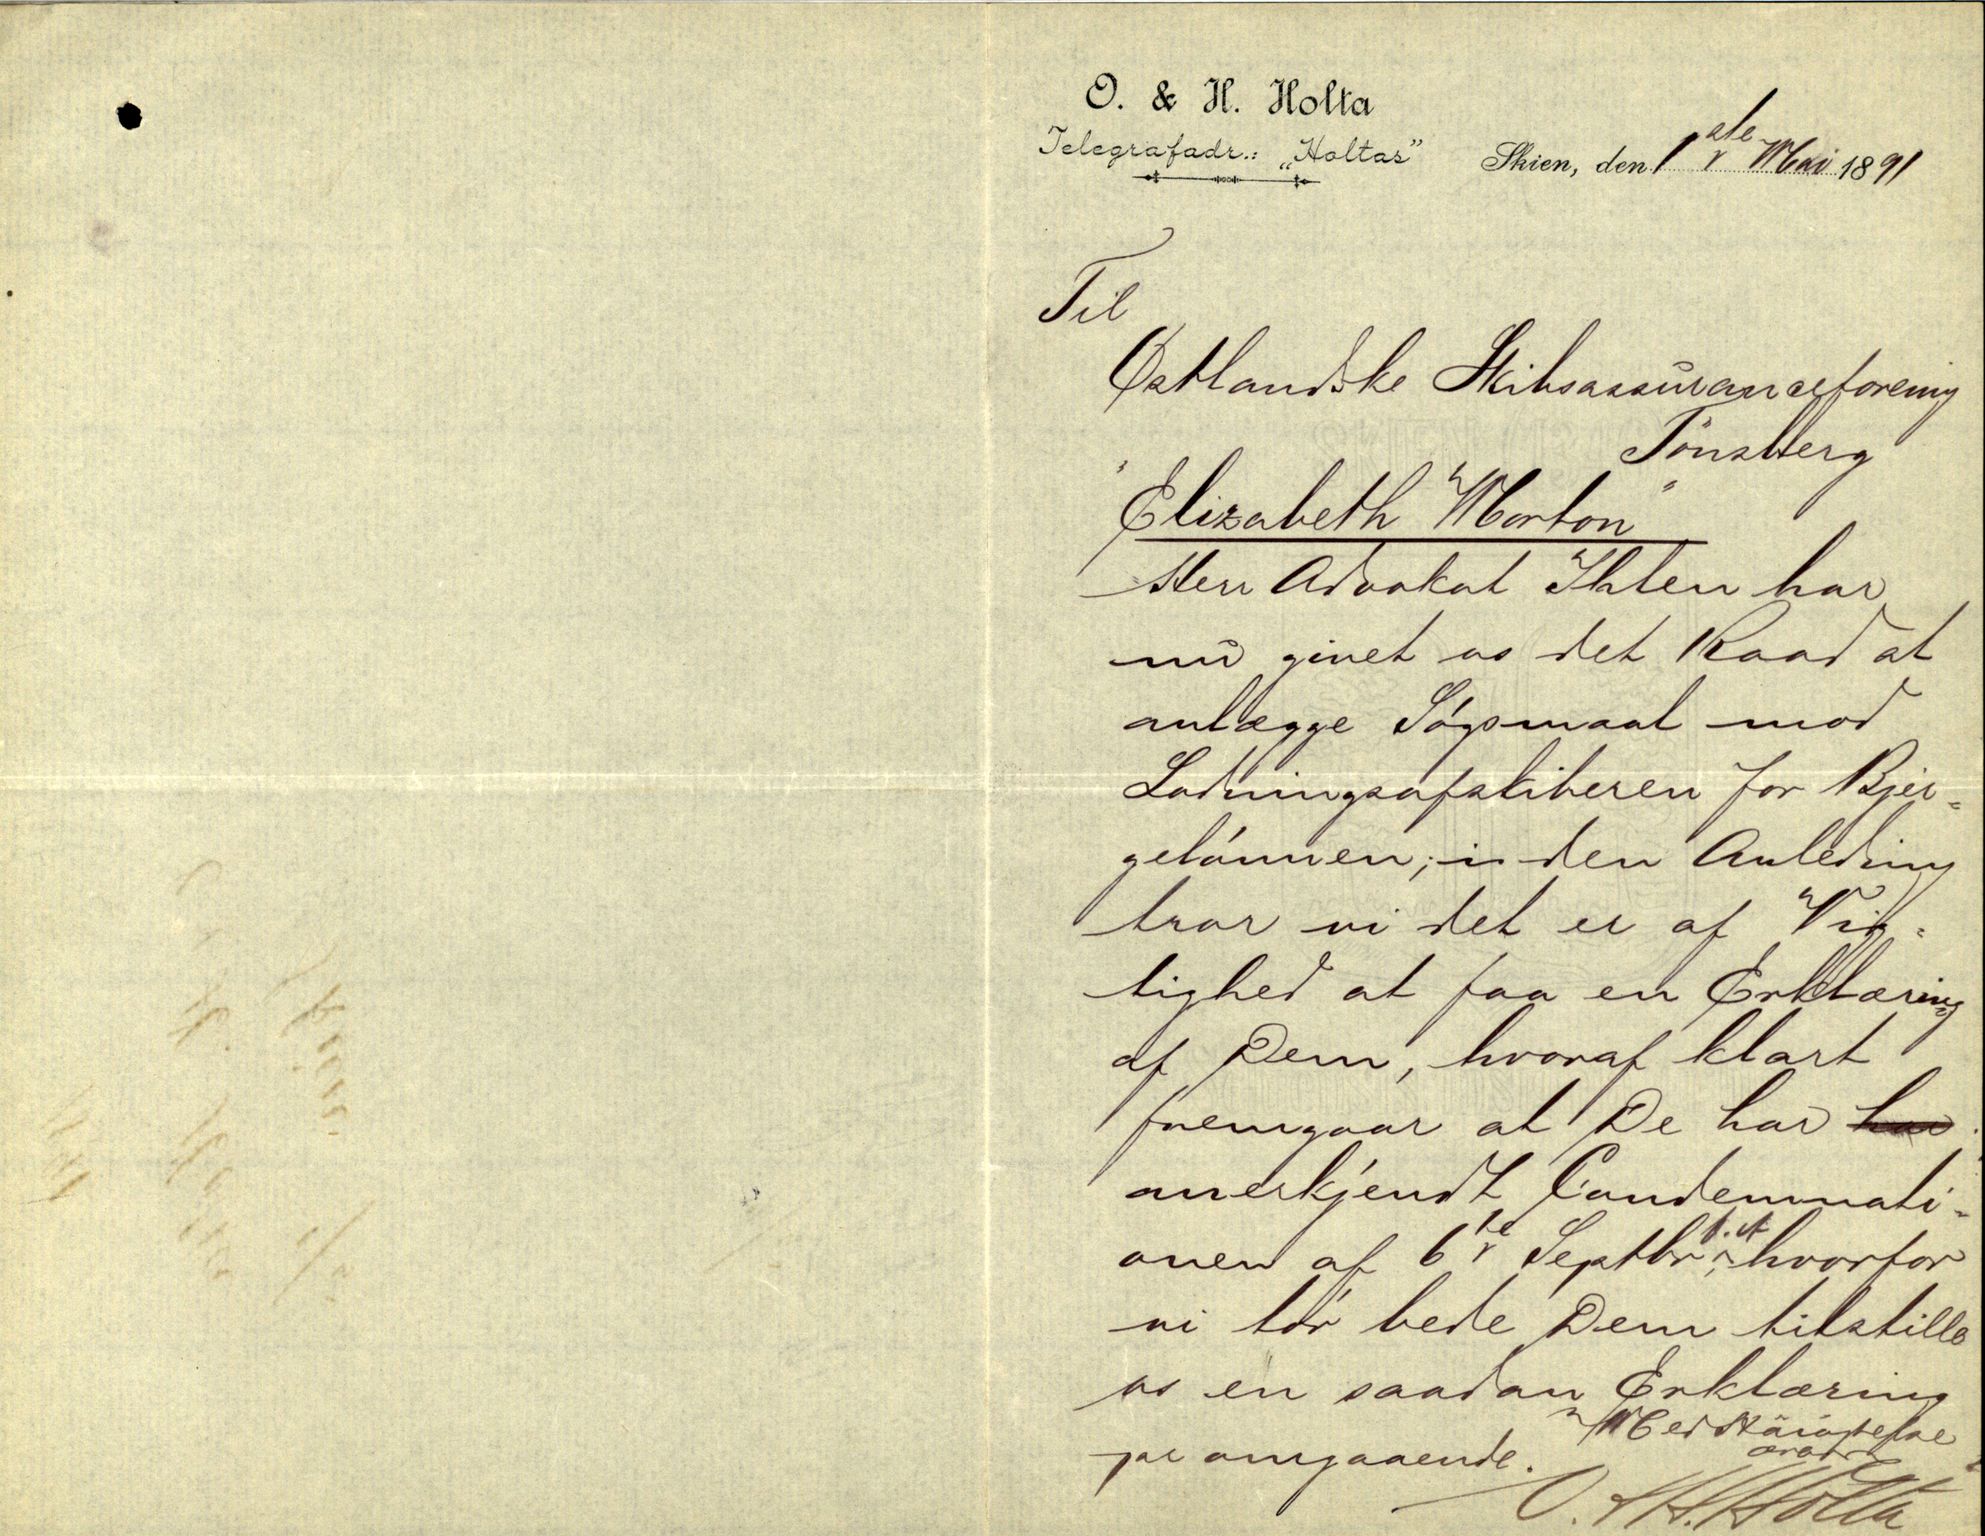 O. & H. Holta
Telegrafadr.: „Holtas”
Skien, den 1ste Mai 1891
Til
Østlandske Skibsassuranceforening
Tönsberg
"Elizabeth Morton"
Herr Advokat Ihlen har
nu givet os det Raad at
anlægge Sögsmaal mod
Ladningsafskiberen for Bjer-
gelönnen; i den Anledning
tror vi det er af Vig-
tighed at faa en Erklæring
af Dem, hvoraf klart
fremgaar at De har har
anerkjendt Condemnati-
onen af 6te Septbr f. A. hvorfor
vi tör bede Dem tilstille
os en saadan Erklæring
pr omgaaende.
Med Höiagtelse
O. & H. Holta